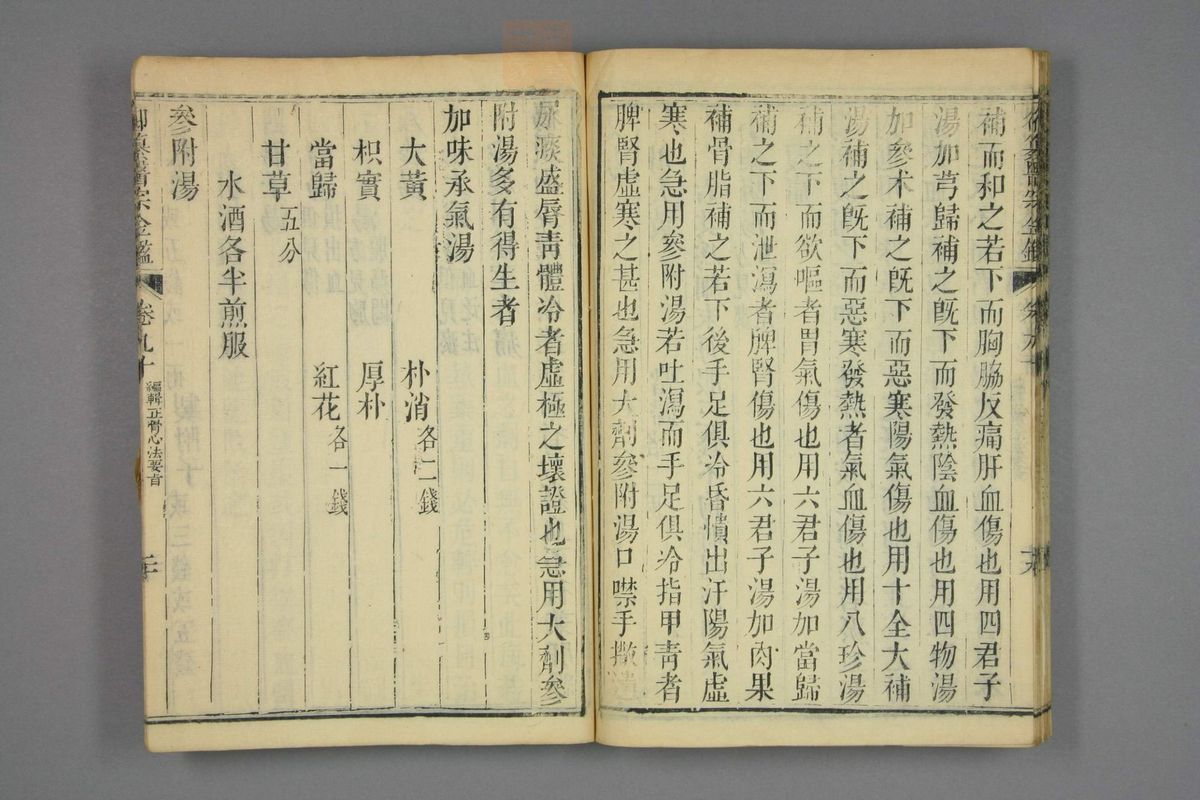 補而和之若下而胸脇反痛肝血傷也用四君子
湯加芎歸補之既下而發熱陰血傷也用四物湯
加參术補之既下而惡寒陽氣傷也用十全大補
湯補之既下而惡寒發熱者氣血傷也用八珍湯
補之下而欲嘔者胃氣傷也用六君子湯加當歸
補之下而泄瀉者脾腎傷也用六君子湯加肉果
補骨脂補之若下後手足俱冷昏憒出汗陽氣虛
寒也急用參附湯若吐瀉而手足俱冷指甲靑者
脾腎虛寒之甚也急用大劑參附湯口噤手撒遺
尿痰盛脣靑體冷者虛極之壞證也急用大劑參
附湯多有得生者
加味承氣湯
大黃 朴消各二錢
枳實 厚朴
當歸 紅花各一錢
甘草五分
水酒各半煎服
參附湯
御纂醫宗金鑑 卷九十 編輯正骨心法要旨 二十